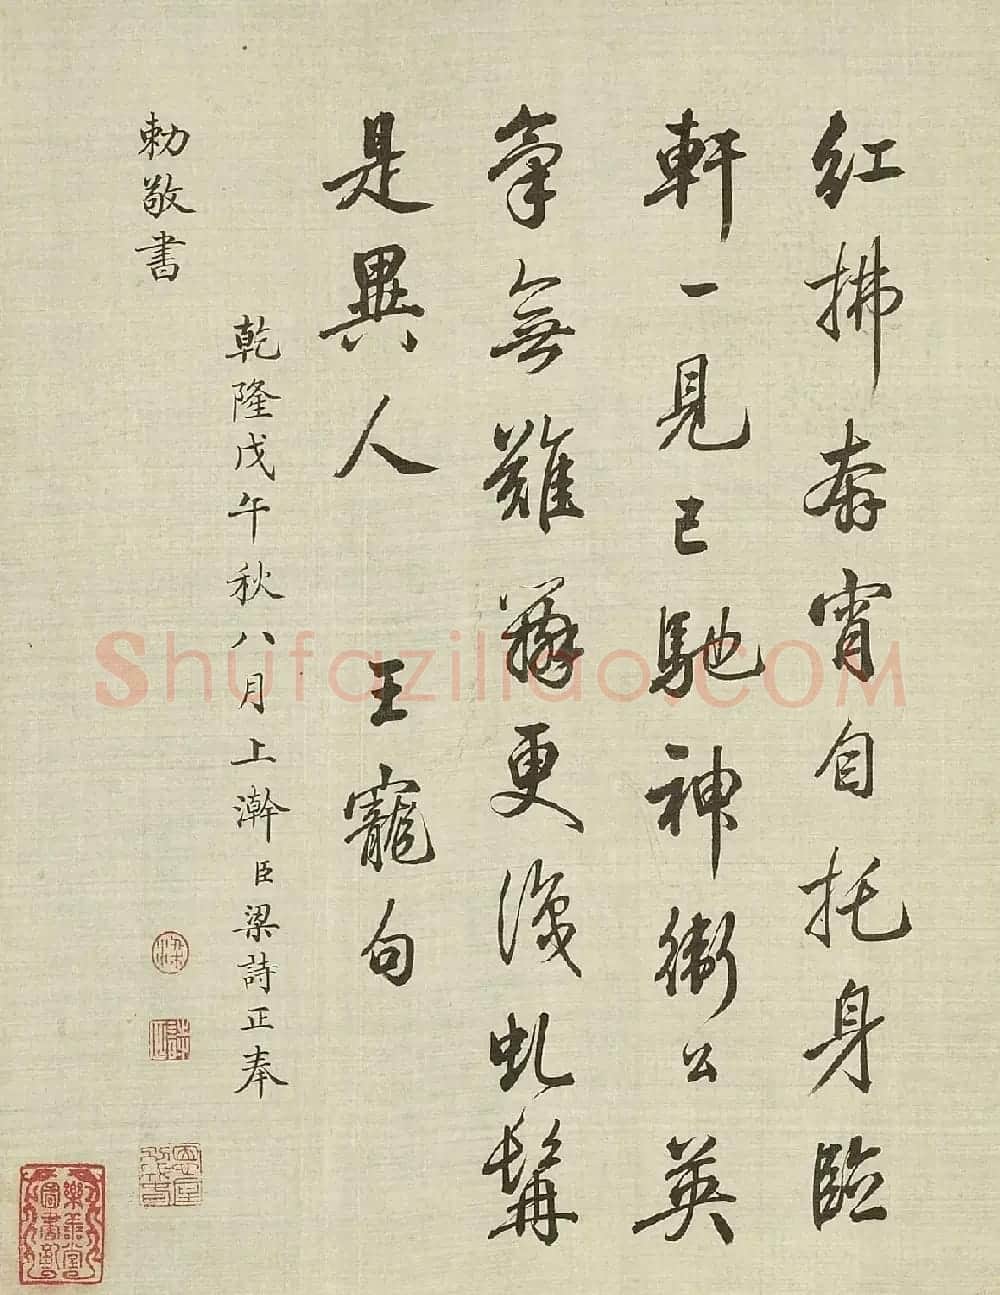 紅拂奔宵自托身臨
軒一見已馳神衛公英
氣無難辨更識虬髯
是異人 王寵句
乾隆戊午秋八月上澣臣梁詩正奉
勅敬書
樂善堂圖書記
Shufaziliao.COM